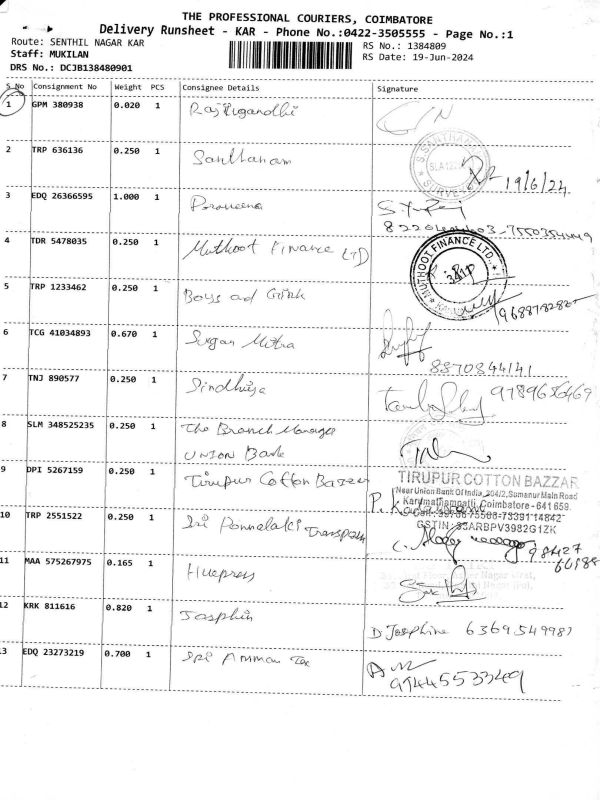 THE PROFESSIONAL COURIERS, COIMBATORE
Delivery Runsheet - KAR - Phone No.:0422-3505555 - Page No.:1
Route: SENTHIL NAGAR KAR
RS No.: 1384809
Staff: MUKILAN
RS Date: 19-Jun-2024
DRS No.: DCJB138480901
S No Consignment No Weight PCS Consignee Details Signature
1 GPM 380938 0.020 1
2 TRP 636136 0.250 1 Santhanam
19/6/24
3 EDQ 26366595 1.000 1 Praveena
4 TDR 5478035 0.250 1 Muthoot Finance LTD
MUTHOOT FINANCE LTD.
5 TRP 1233462 0.250 1 Boys ad
6 TCG 41034893 0.670 1 Sugan Mitra
8870844141
7 TNJ 890577 0.250 1 Sindhuja
9789656469
8 SLM 348525235 0.250 1 The Branch Manager
UNION Bank
9 DPI 5267159 0.250 1 Tirupur Cotton Bazzer
TIRUPUR COTTON BAZZAR
Near Union Bank Of India, 204/2, Somanur Main Road
Karumathampatti, Coimbatore - 641 659.
GSTIN: 33ARBPV3982G1ZK
10 TRP 2551522 0.250 1 Sri Ponnalaki Transport
11 MAA 575267975 0.165 1
12 KRK 811616 0.820 1 Josphin
D Josephine 6369549987
13 EDQ 23273219 0.700 1 Sri Amman Tex
9944553349